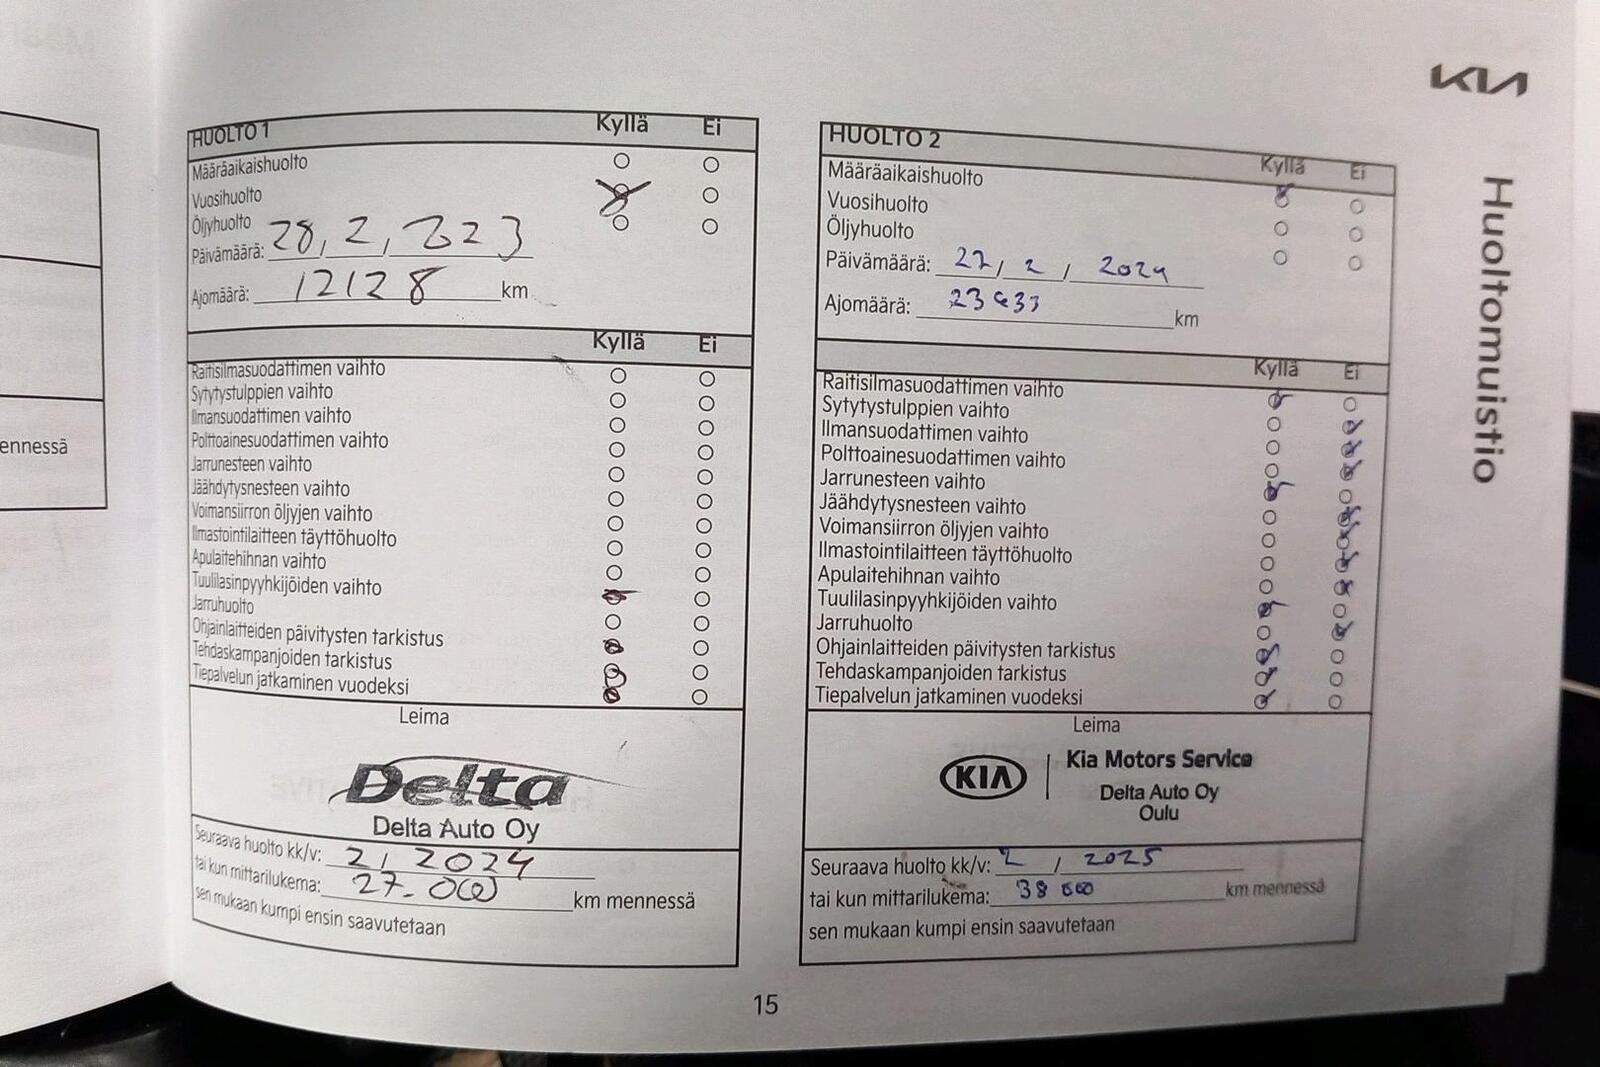 KIA
Huoltomuistio
ennessä
HUOLTO 1 Kyllä Ei
Määräaikaishuolto
Vuosihuolto
Öljyhuolto
Päivämäärä: 28, 2, 2023
Ajomäärä: 12128 km
Kyllä Ei
Raitisilmasuodattimen vaihto
Sytytystulppien vaihto
Ilmansuodattimen vaihto
Polttoainesuodattimen vaihto
Jarrunesteen vaihto
Jäähdytysnesteen vaihto
Voimansiirron öljyjen vaihto
Ilmastointilaitteen täyttöhuolto
Apulaitehihnan vaihto
Tuulilasinpyyhkijöiden vaihto
Jarruhuolto
Ohjainlaitteiden päivitysten tarkistus
Tehdaskampanjoiden tarkistus
Tiepalvelun jatkaminen vuodeksi
Leima
Delta
Delta Auto Oy
Seuraava huolto kk/v: 2, 2024
tai kun mittarilukema: 27.000 km mennessä
sen mukaan kumpi ensin saavutetaan
HUOLTO 2 Kyllä Ei
Määräaikaishuolto
Vuosihuolto
Öljyhuolto
Päivämäärä: 27 / 2 / 2024
Ajomäärä: km
Kyllä Ei
Raitisilmasuodattimen vaihto
Sytytystulppien vaihto
Ilmansuodattimen vaihto
Polttoainesuodattimen vaihto
Jarrunesteen vaihto
Jäähdytysnesteen vaihto
Voimansiirron öljyjen vaihto
Ilmastointilaitteen täyttöhuolto
Apulaitehihnan vaihto
Tuulilasinpyyhkijöiden vaihto
Jarruhuolto
Ohjainlaitteiden päivitysten tarkistus
Tehdaskampanjoiden tarkistus
Tiepalvelun jatkaminen vuodeksi
Leima
KIA Kia Motors Service
Delta Auto Oy
Oulu
Seuraava huolto kk/v: 2 / 2025
tai kun mittarilukema: 38 000 km mennessä
sen mukaan kumpi ensin saavutetaan
15